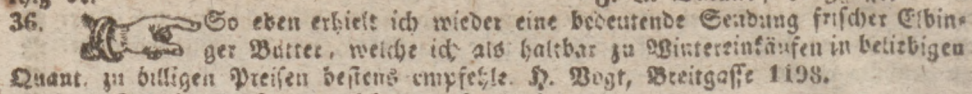 36. So eben erhielt ich wieder eine bedeutende Sendung frischer Elbin-
ger Butter, welche ich als haltbar zu Wintereinkäufen in beliebigen
Quant. zu billigen Preisen bestens empfehle. H. Vogt, Breitgasse 1198.